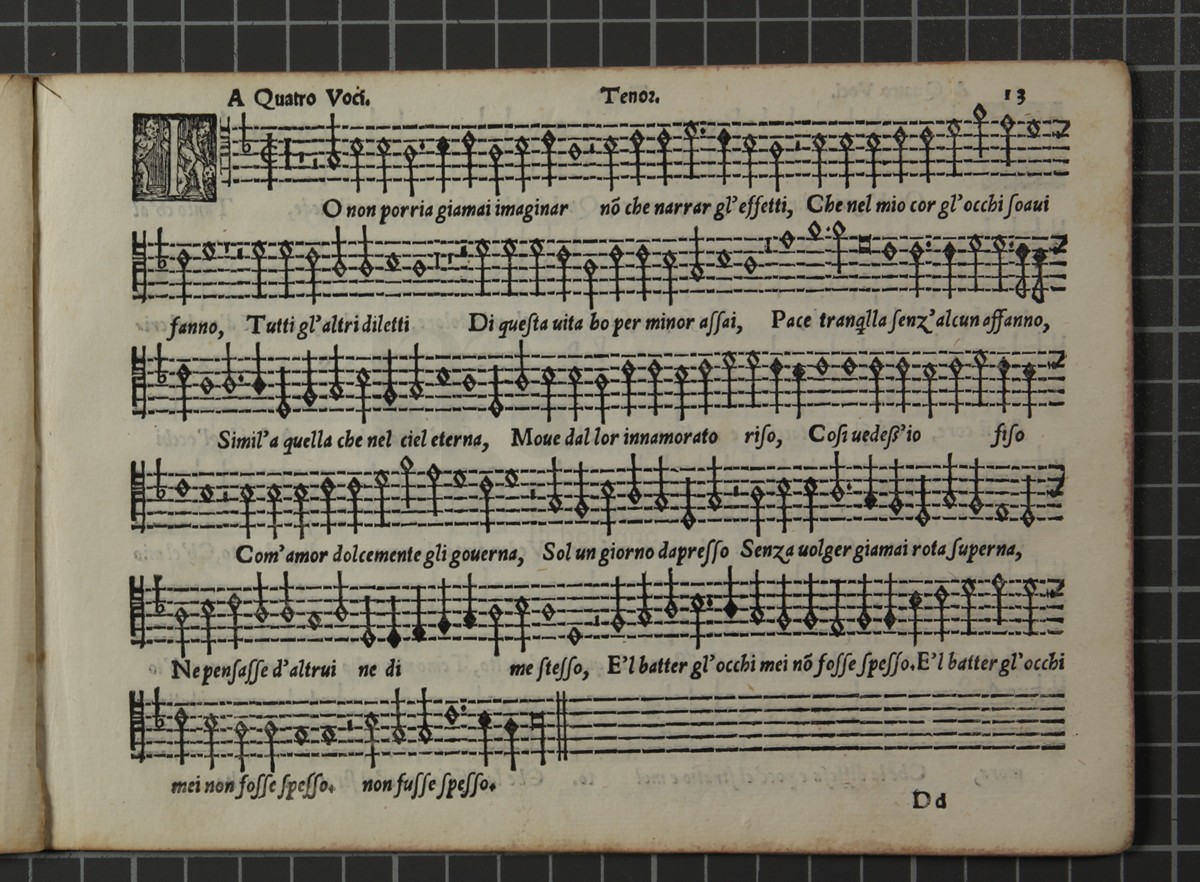 A Quatro Voci. Tenor. 13
IO non porria giamai imaginar nõ che narrar gl'effetti, Che nel mio cor gl'occhi ſoaui
fanno, Tutti gl'altri diletti Di queſta uita ho per minor aſſai, Pace tranq̃lla ſenz'alcun affanno,
Simil'a quella che nel ciel eterna, Moue dal lor innamorato riſo, Coſi uedeß'io fiſo
Com'amor dolcemente gli gouerna, Sol un giorno dapreſſo Senza uolger giamai rota ſuperna,
Ne penſaſſe d'altrui ne di me ſteſſo, E'l batter gl'occhi mei nõ foſſe ſpeſſo. E'l batter gl'occhi
mei non foſſe ſpeſſo. non fuſſe ſpeſſo.
Dd